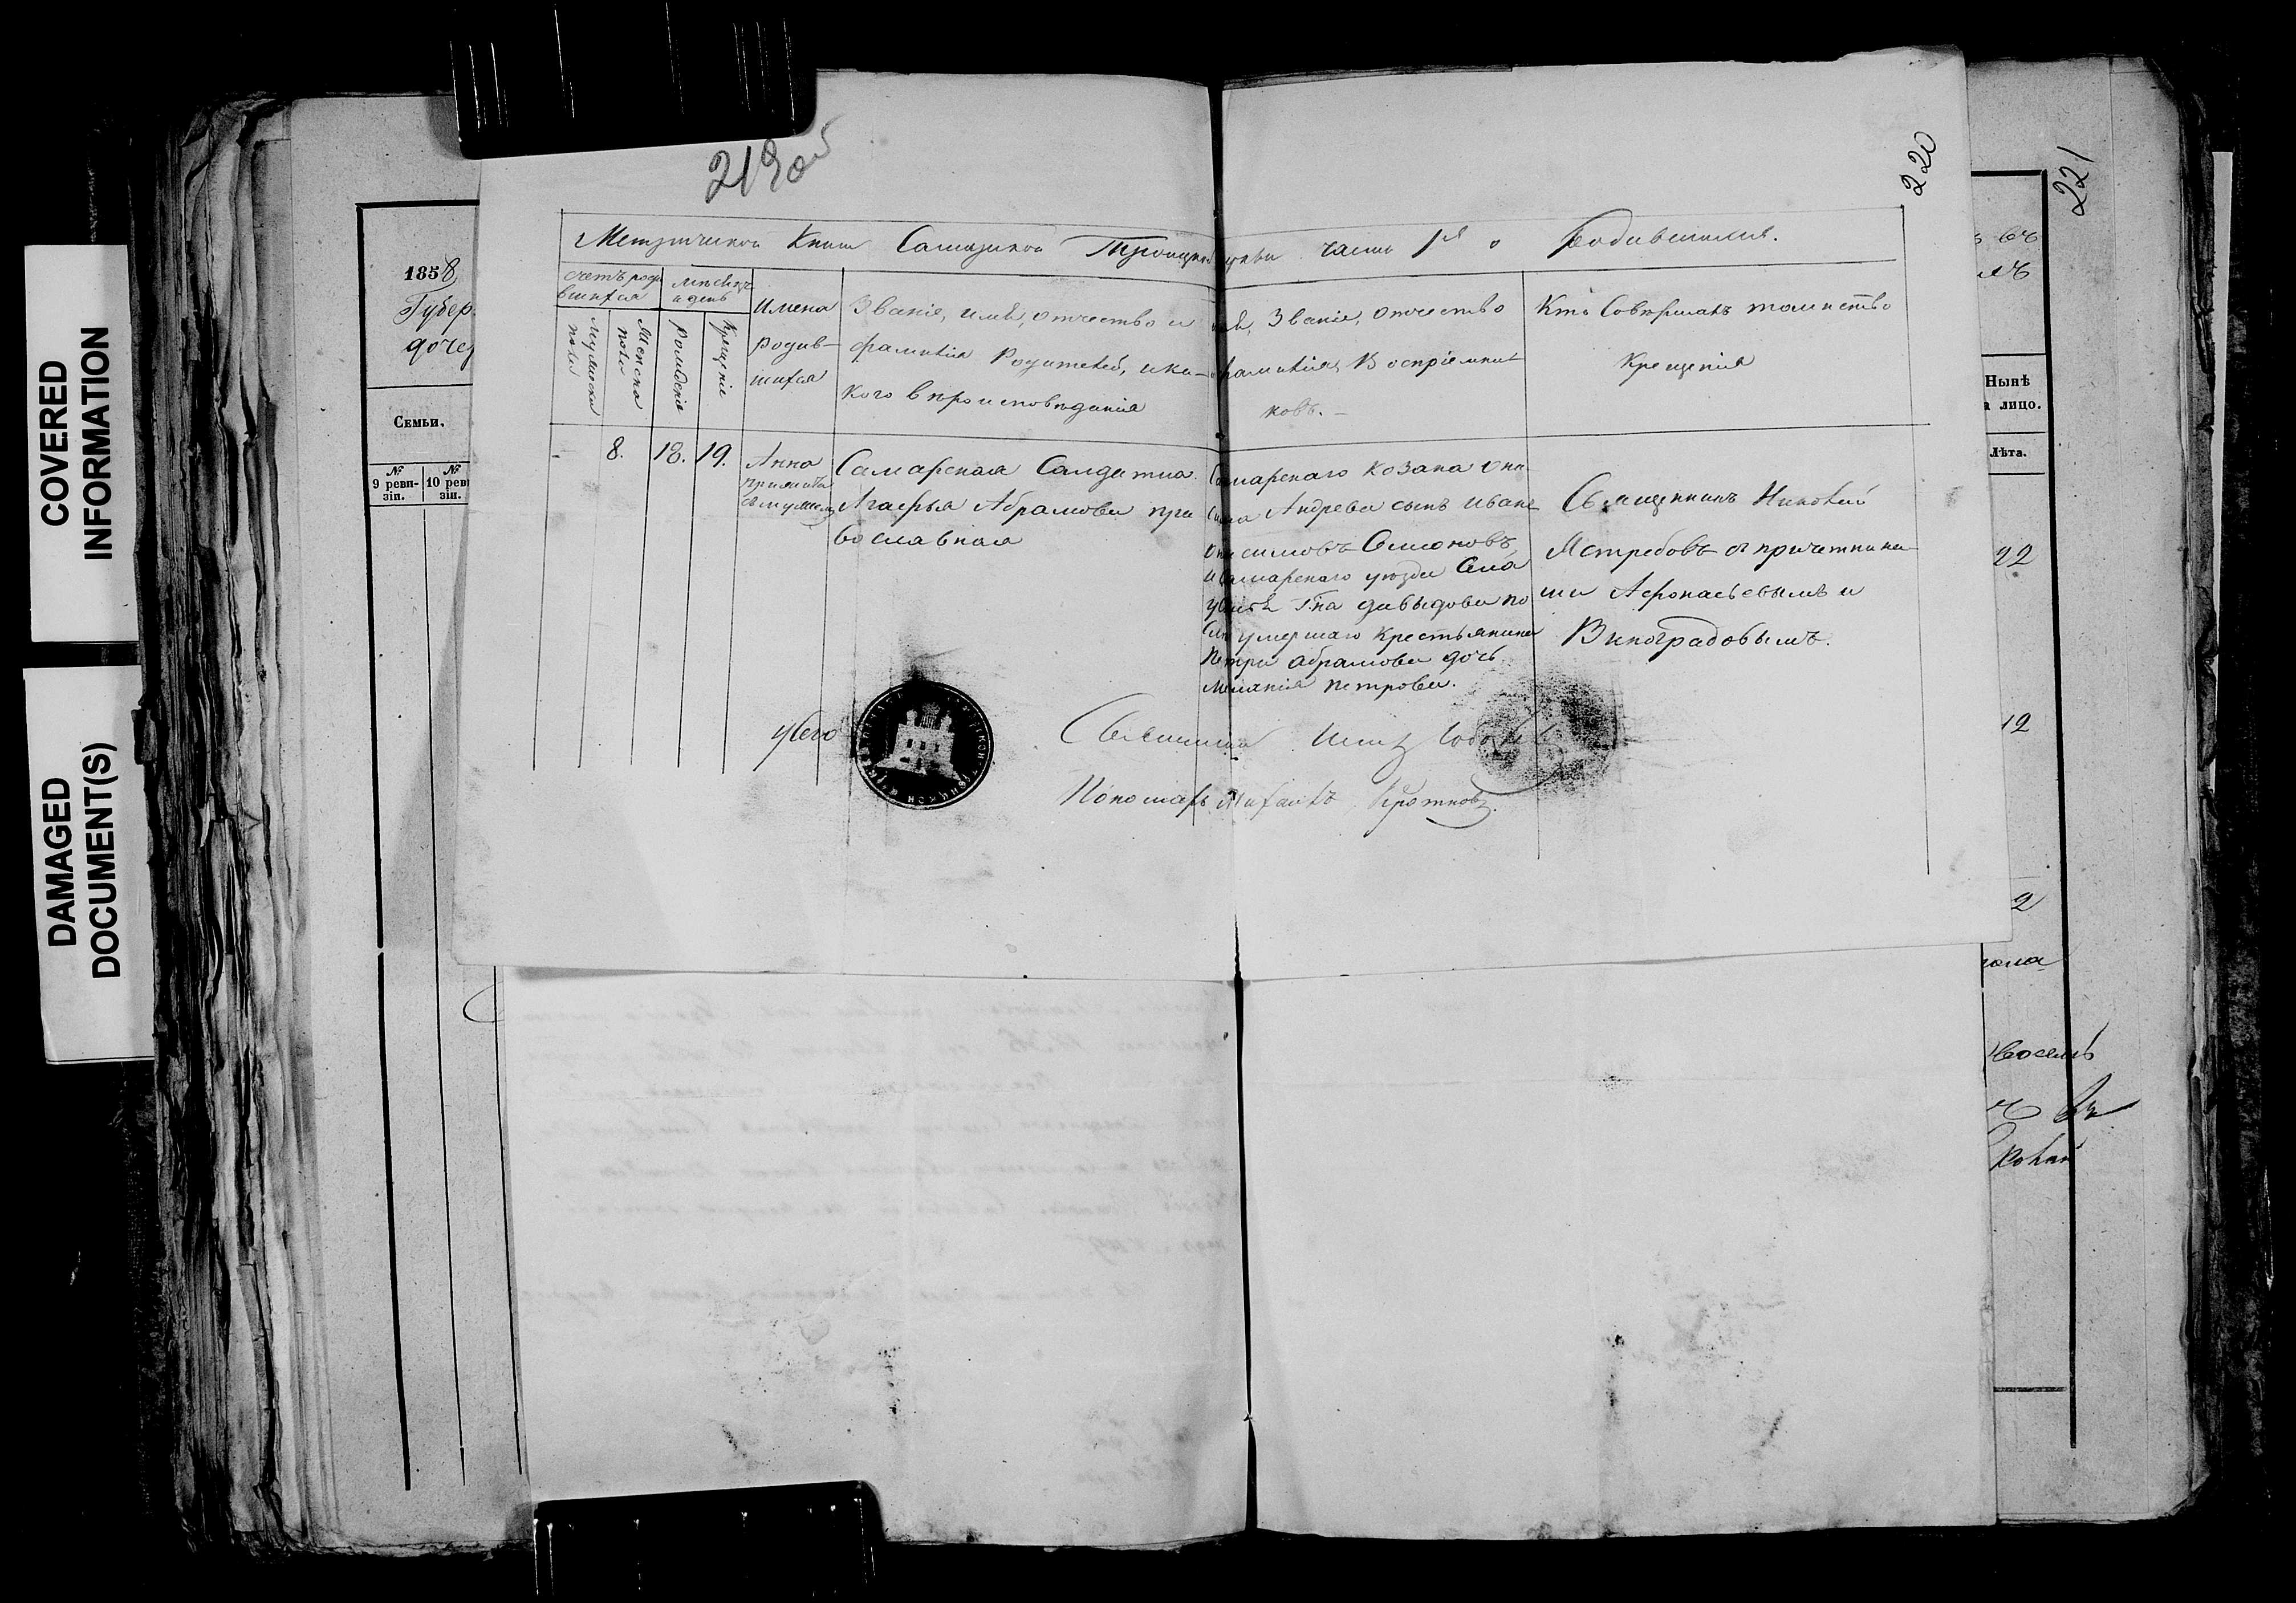 COVERED
INFORMATION
DAMAGED
DOCUMENT(S)
219об
220
221
1858
Губер
дочер
Семьи.
№ 9 реви-зіи.
№ 10 реви зіи.
Ныне
лицо.
Лѣта.
22
12
2
Метрической Книги Самарской Троицкой церкви часть 1я о родившихся.
Счетъ родившихся
Мужеска пола
Женска пола
Мѣсяцъ и день
Рожденіе
Крещеніе
Имена родив-шихся
Званіе, имя, отчество и
фамилія Родителей, и ка-
кого вѣроисповѣданія
имя, Званіе, отчество
фамилія, Воспріемни-
ковъ. -
Кто Совершалъ таинство
Крещенія
-
8.
18.
19.
Анна
Самарская Салдатка
Агафья Абрамова пра
вославная
Самарскаго Козака Они
сима Андреева сынъ Иванъ
Онисимовъ Семеновъ,
и Самарскаго уезда Села
Гна Давыдова по
умершаго крестьянина
Петра Абрамова дочь
Меланія Петрова.
Священникъ Николай
Ястребовъ съ причетника
ми Афонасьевымъ и
Виноградовымъ.
Священникъ
Пономарь Михаилъ Кротковъ.